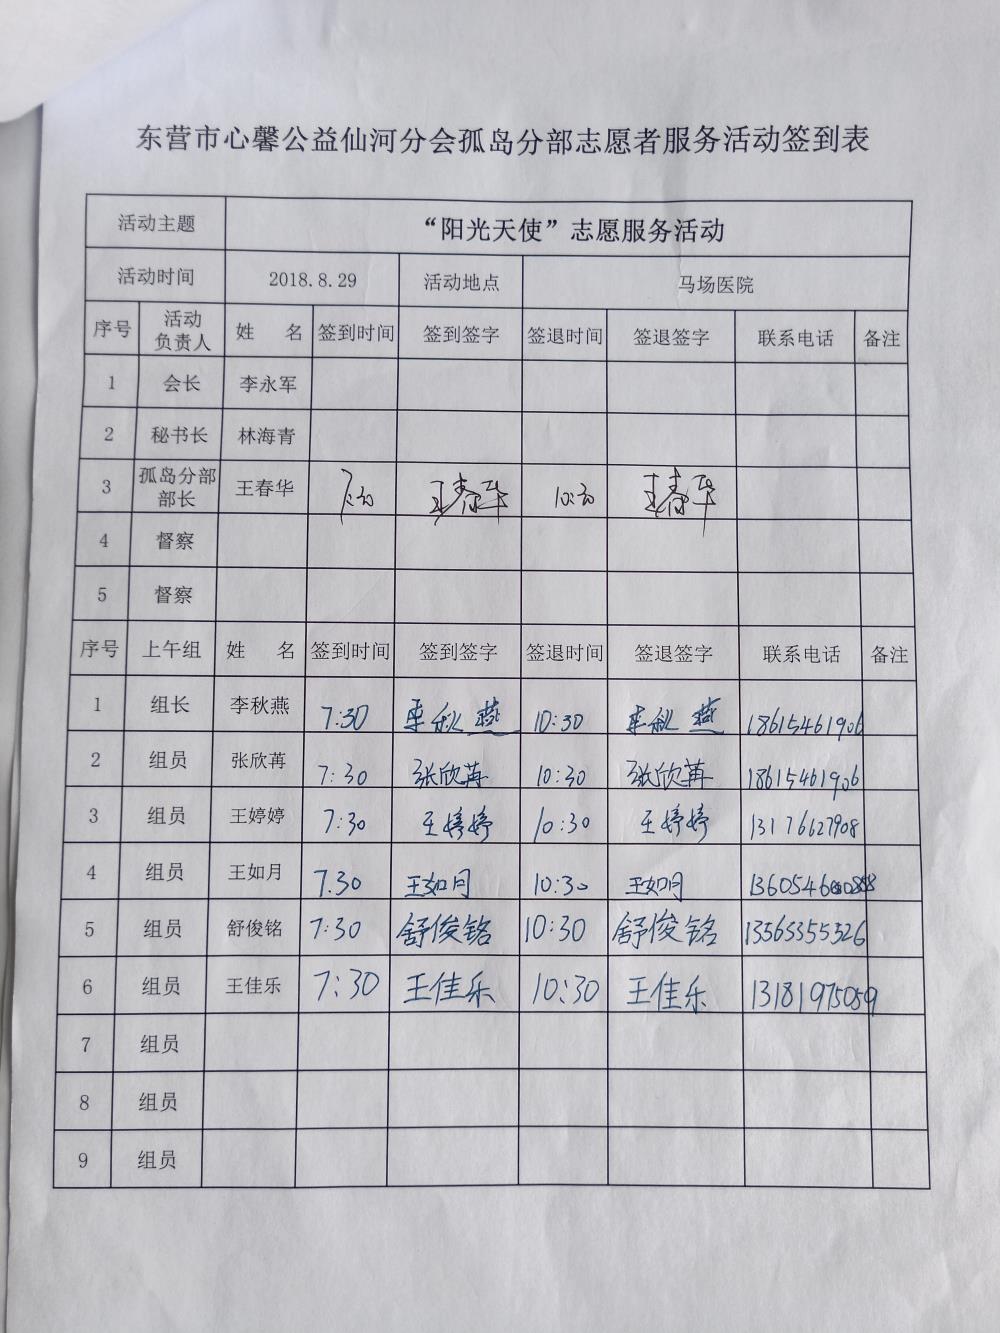 东营市心馨公益仙河分会孤岛分部志愿者服务活动签到表
活动主题 “阳光天使”志愿服务活动
活动时间 2018.8.29 活动地点 马场医院
序号 活动负责人 姓 名 签到时间 签到签字 签退时间 签退签字 联系电话 备注
1 会长 李永军
2 秘书长 林海青
3 孤岛分部部长 王春华 7:30 王春华 10:30 王春华
4 督察
5 督察
序号 上午组 姓 名 签到时间 签到签字 签退时间 签退签字 联系电话 备注
1 组长 李秋燕 7:30 李秋燕 10:30 李秋燕 18615461906
2 组员 张欣苒 7:30 张欣苒 10:30 张欣苒 18615461906
3 组员 王婷婷 7:30 王婷婷 10:30 王婷婷 13176627908
4 组员 王如月 7.30 王如月 10:30 王如月
5 组员 舒俊铭 7:30 舒俊铭 10:30 舒俊铭 13563355326
6 组员 王佳乐 7:30 王佳乐 10:30 王佳乐 13181975059
7 组员
8 组员
9 组员